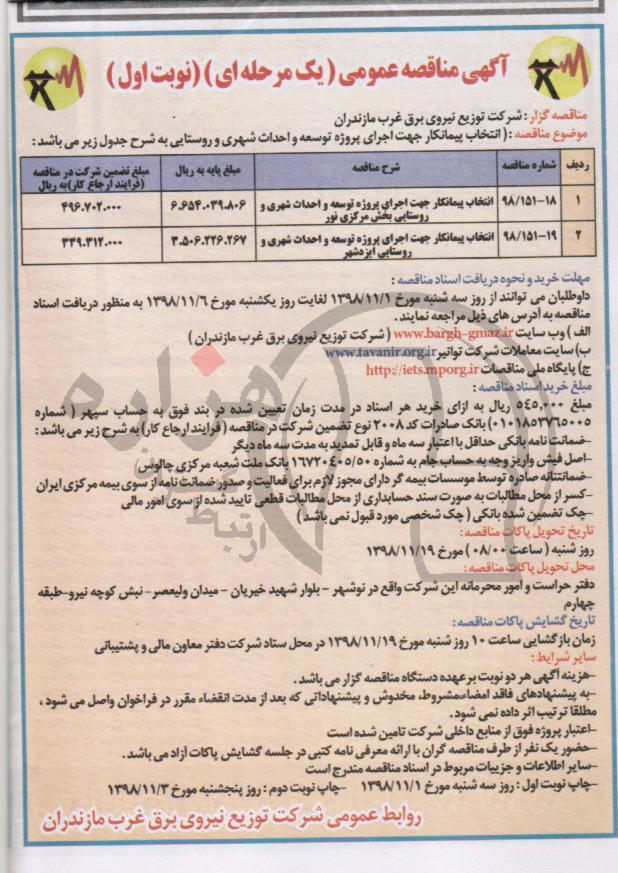 آگهی مناقصه عمومی ( یک مرحله ای ) ( نوبت اول )
مناقصه گزار : شرکت توزیع نیروی برق غرب مازندران
موضوع مناقصه : ( انتخاب پیمانکار جهت اجرای پروژه توسعه و احداث شهری و روستایی به شرح جدول زیر می باشد :
ردیف شماره مناقصه شرح مناقصه مبلغ پایه به ریال مبلغ تضمین شرکت در مناقصه (فرایند ارجاع کار) به ریال
۱ ۹۸/۱۵۱-۱۸ انتخاب پیمانکار جهت اجرای پروژه توسعه و احداث شهری و روستایی بخش مرکزی نور ۶.۶۵۴.۰۳۹.۸۰۶ ۴۹۶.۷۰۲.۰۰۰
۲ ۹۸/۱۵۱-۱۹ انتخاب پیمانکار جهت اجرای پروژه توسعه و احداث شهری و روستایی ایزدشهر ۳.۵۰۶.۲۲۶.۲۶۷ ۳۳۹.۳۱۲.۰۰۰
مهلت خرید و نحوه دریافت اسناد مناقصه :
داوطلبان می توانند از روز سه شنبه مورخ ۱۳۹۸/۱۱/۱ لغایت روز یکشنبه مورخ ۱۳۹۸/۱۱/۶ به منظور دریافت اسناد
مناقصه به آدرس های ذیل مراجعه نمایند .
الف ) وب سایت www.bargh-gmaz.ir ( شرکت توزیع نیروی برق غرب مازندران )
ب) سایت معاملات شرکت توانیر www.tavanir.org.ir
ج) پایگاه ملی مناقصات http://iets.mporg.ir
مبلغ خرید اسناد مناقصه :
مبلغ ۵۴۵,۰۰۰ ریال به ازای خرید هر اسناد در مدت زمان تعیین شده در بند فوق به حساب سپهر ( شماره
۰۱۰۱۸۵۳۷۶۵۰۰۵) بانک صادرات کد ۲۰۰۸ نوع تضمین شرکت در مناقصه ( فرایند ارجاع کار) به شرح زیر می باشد :
-ضمانت نامه بانکی حداقل با اعتبار سه ماه و قابل تمدید به مدت سه ماه دیگر
-اصل فیش واریز وجه به حساب جام به شماره ۱۶۷۲۰۴۰۵/۵۰ بانک ملت شعبه مرکزی چالوس
-ضمانتنانه صادره توسط موسسات بیمه گر دارای مجوز لازم برای فعالیت و صدور ضمانت نامه از سوی بیمه مرکزی ایران
-کسر از محل مطالبات به صورت سند حسابداری از محل مطالبات قطعی تایید شده از سوی امور مالی
-چک تضمین شده بانکی ( چک شخصی مورد قبول نمی باشد )
تاریخ تحویل پاکات مناقصه:
روز شنبه ( ساعت ۰۸/۰۰ ) مورخ ۱۳۹۸/۱۱/۱۹
محل تحویل پاکات مناقصه:
دفتر حراست و امور محرمانه این شرکت واقع در نوشهر – بلوار شهید خیریان – میدان ولیعصر- نبش کوچه نیرو-طبقه
چهارم
تاریخ گشایش پاکات مناقصه :
زمان بازگشایی ساعت ۱۰ روز شنبه مورخ ۱۳۹۸/۱۱/۱۹ در محل ستاد شرکت دفتر معاون مالی و پشتیبانی
سایر شرایط :
-هزینه آگهی هر دو نوبت بر عهده دستگاه مناقصه گزار می باشد .
-به پیشنهادهای فاقد امضاء،مشروط، مخدوش و پیشنهاداتی که بعد از مدت انقضاء مقرر در فراخوان واصل می شود ،
مطلقا ترتیب اثر داده نمی شود.
-اعتبار پروژه فوق از منابع داخلی شرکت تامین شده است
-حضور یک نفر از طرف مناقصه گران با ارائه معرفی نامه کتبی در جلسه گشایش پاکات آزاد می باشد.
-سایر اطلاعات و جزییات مربوط در اسناد مناقصه مندرج است
-چاپ نوبت اول : روز سه شنبه مورخ ۱۳۹۸/۱۱/۱ -چاپ نوبت دوم : روز پنجشنبه مورخ ۱۳۹۸/۱۱/۳
روابط عمومی شرکت توزیع نیروی برق غرب مازندران
هزاره
ارتباط